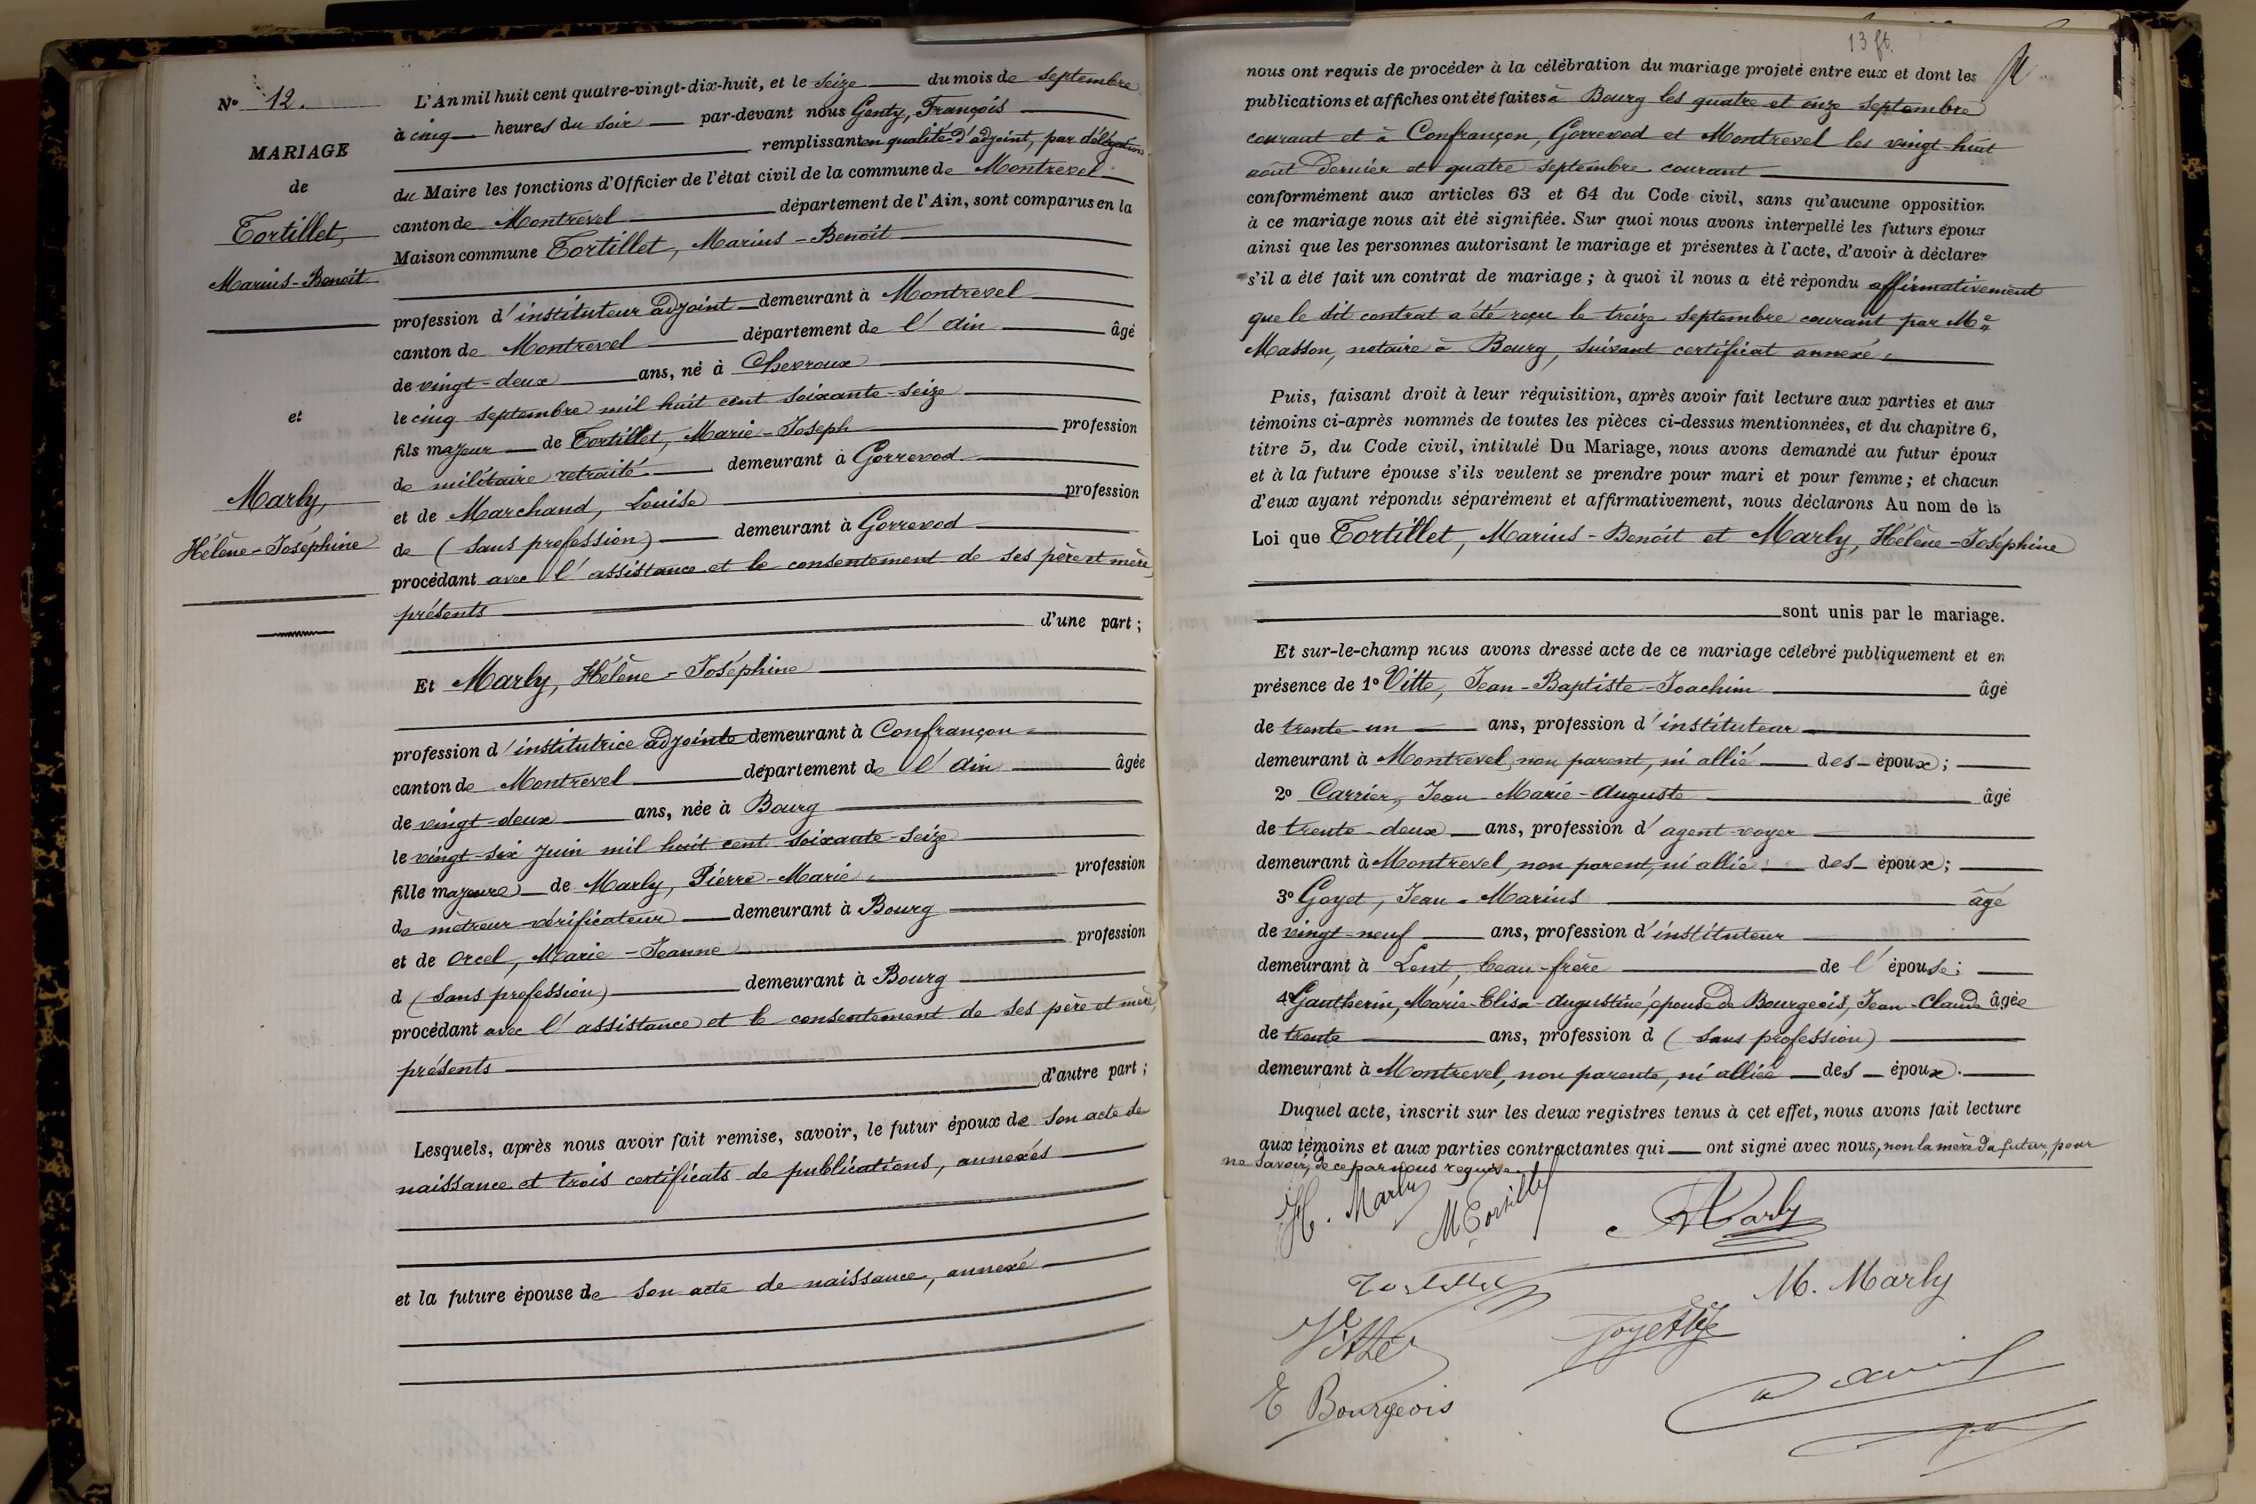 N° 12.
MARIAGE
de
Tortillet,
Marius-Benoît
et
Marly,
Hélène-Joséphine
L'An mil huit cent quatre-vingt-dix-huit, et le seize du mois de septembre
à cinq heures du soir par-devant nous Genty, François
remplissant en qualité d'adjoint, par délégation
du Maire les fonctions d'Officier de l'état civil de la commune de Montrevel
canton de Montrevel département de l'Ain, sont comparus en la
Maison commune Tortillet, Marius-Benoît
profession d'instituteur adjoint demeurant à Montrevel
canton de Montrevel département de l'Ain âgé
de vingt-deux ans, né à Chevroux
le cinq septembre mil huit cent soixante-seize
fils majeur de Tortillet, Marie-Joseph profession
de militaire retraité demeurant à Gorrevod
et de Marchand, Louise profession
de (sans profession) demeurant à Gorrevod
procédant avec l'assistance et le consentement de ses père et mère,
présents
d'une part;
Et Marly, Hélène-Joséphine
profession d'institutrice adjointe demeurant à Confrançon
canton de Montrevel département de l'Ain âgée
de vingt-deux ans, née à Bourg
le vingt-six juin mil huit cent soixante-seize
fille majeure de Marly, Pierre-Marie profession
de métreur-vérificateur demeurant à Bourg
et de Orcel, Marie-Jeanne profession
d (sans profession) demeurant à Bourg
procédant avec l'assistance et le consentement de ses père et mère,
présents
d'autre part;
Lesquels, après nous avoir fait remise, savoir, le futur époux de son acte de
naissance et trois certificats de publications, annexés
et la future épouse de son acte de naissance, annexé
13 ft.
nous ont requis de procéder à la célébration du mariage projeté entre eux et dont les
publications et affiches ont été faites à Bourg les quatre et onze septembre
courant et à Confrançon, Gorrevod et Montrevel les vingt-huit
août dernier et quatre septembre courant
conformément aux articles 63 et 64 du Code civil, sans qu'aucune opposition
à ce mariage nous ait été signifiée. Sur quoi nous avons interpellé les futurs époux
ainsi que les personnes autorisant le mariage et présentes à l'acte, d'avoir à déclarer
s'il a été fait un contrat de mariage; à quoi il nous a été répondu affirmativement
que le dit contrat a été reçu le treize septembre courant par Me
Masson, notaire à Bourg, suivant certificat annexé.
Puis, faisant droit à leur réquisition, après avoir fait lecture aux parties et aux
témoins ci-après nommés de toutes les pièces ci-dessus mentionnées, et du chapitre 6,
titre 5, du Code civil, intitulé Du Mariage, nous avons demandé au futur époux
et à la future épouse s'ils veulent se prendre pour mari et pour femme; et chacun
d'eux ayant répondu séparément et affirmativement, nous déclarons Au nom de la
Loi que Tortillet, Marius-Benoît et Marly, Hélène-Joséphine
sont unis par le mariage.
Et sur-le-champ nous avons dressé acte de ce mariage célébré publiquement et en
présence de 1° Vitte, Jean-Baptiste-Joachim âgé
de trente-un ans, profession d'instituteur
demeurant à Montrevel, non parent, ni allié des époux;
2° Carrier, Jean-Marie-Auguste âgé
de trente-deux ans, profession d'agent-voyer
demeurant à Montrevel, non parent, ni allié des époux;
3° Goyet, Jean-Marius âgé
de vingt-neuf ans, profession d'instituteur
demeurant à Lent, beau-frère de l'épouse;
4° Gautherin, Marie-Elisa-Augustine, épouse de Bourgeois, Jean-Claude âgée
de trente ans, profession d (sans profession)
demeurant à Montrevel, non parente, ni alliée des époux.
Duquel acte, inscrit sur les deux registres tenus à cet effet, nous avons fait lecture
aux témoins et aux parties contractantes qui ont signé avec nous, non la mère du futur, pour
ne savoir, de ce par nous requise.
H. Marly
M Tortillet
Marly
Tortillet
M. Marly
Vitte
Goyet
E Bourgeois